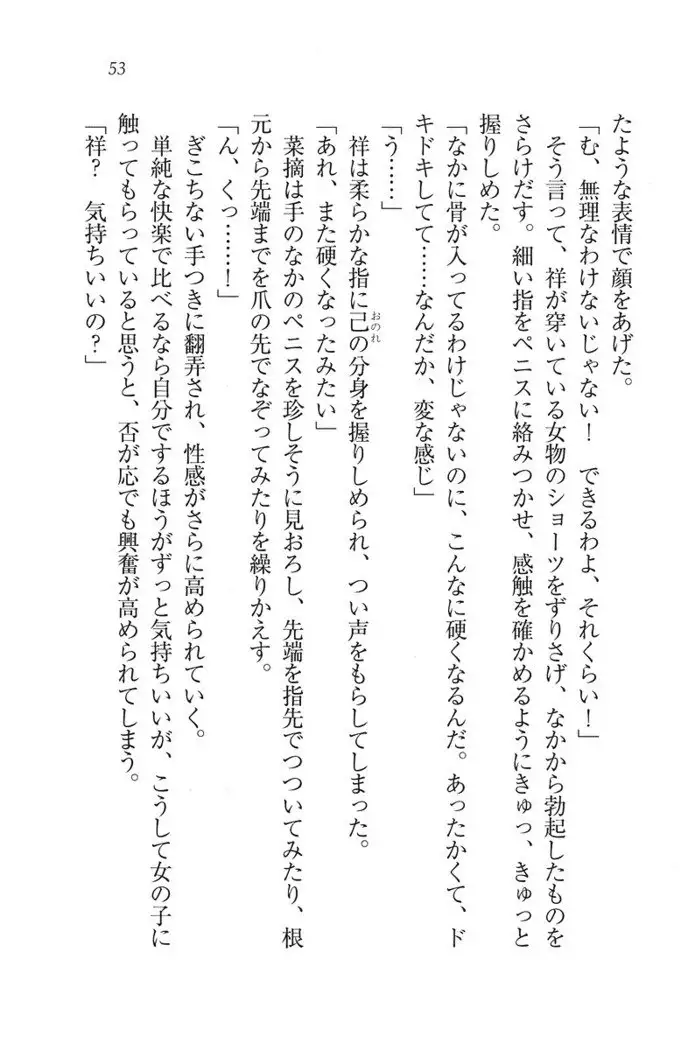 53
たような表情で顔をあげた。
「む、無理なわけないじゃない！　できるわよ、それくらい！」
そう言って、祥が穿いている女物のショーツをずりさげ、なかから勃起したものを
さらけだす。細い指をペニスに絡みつかせ、感触を確かめるようにきゅっ、きゅっと
握りしめた。
「なかに骨が入ってるわけじゃないのに、こんなに硬くなるんだ。あったかくて、ド
キドキしてて……なんだか、変な感じ」
「う……」
祥は柔らかな指に己おのれの分身を握りしめられ、つい声をもらしてしまった。
「あれ、また硬くなったみたい」
菜摘は手のなかのペニスを珍しそうに見おろし、先端を指先でつついてみたり、根
元から先端までを爪の先でなぞってみたりを繰りかえす。
「ん、くっ……！」
ぎこちない手つきに翻弄され、性感がさらに高められていく。
単純な快楽で比べるなら自分でするほうがずっと気持ちいいが、こうして女の子に
触ってもらっていると思うと、否が応でも興奮が高められてしまう。
「祥？　気持ちいいの？」